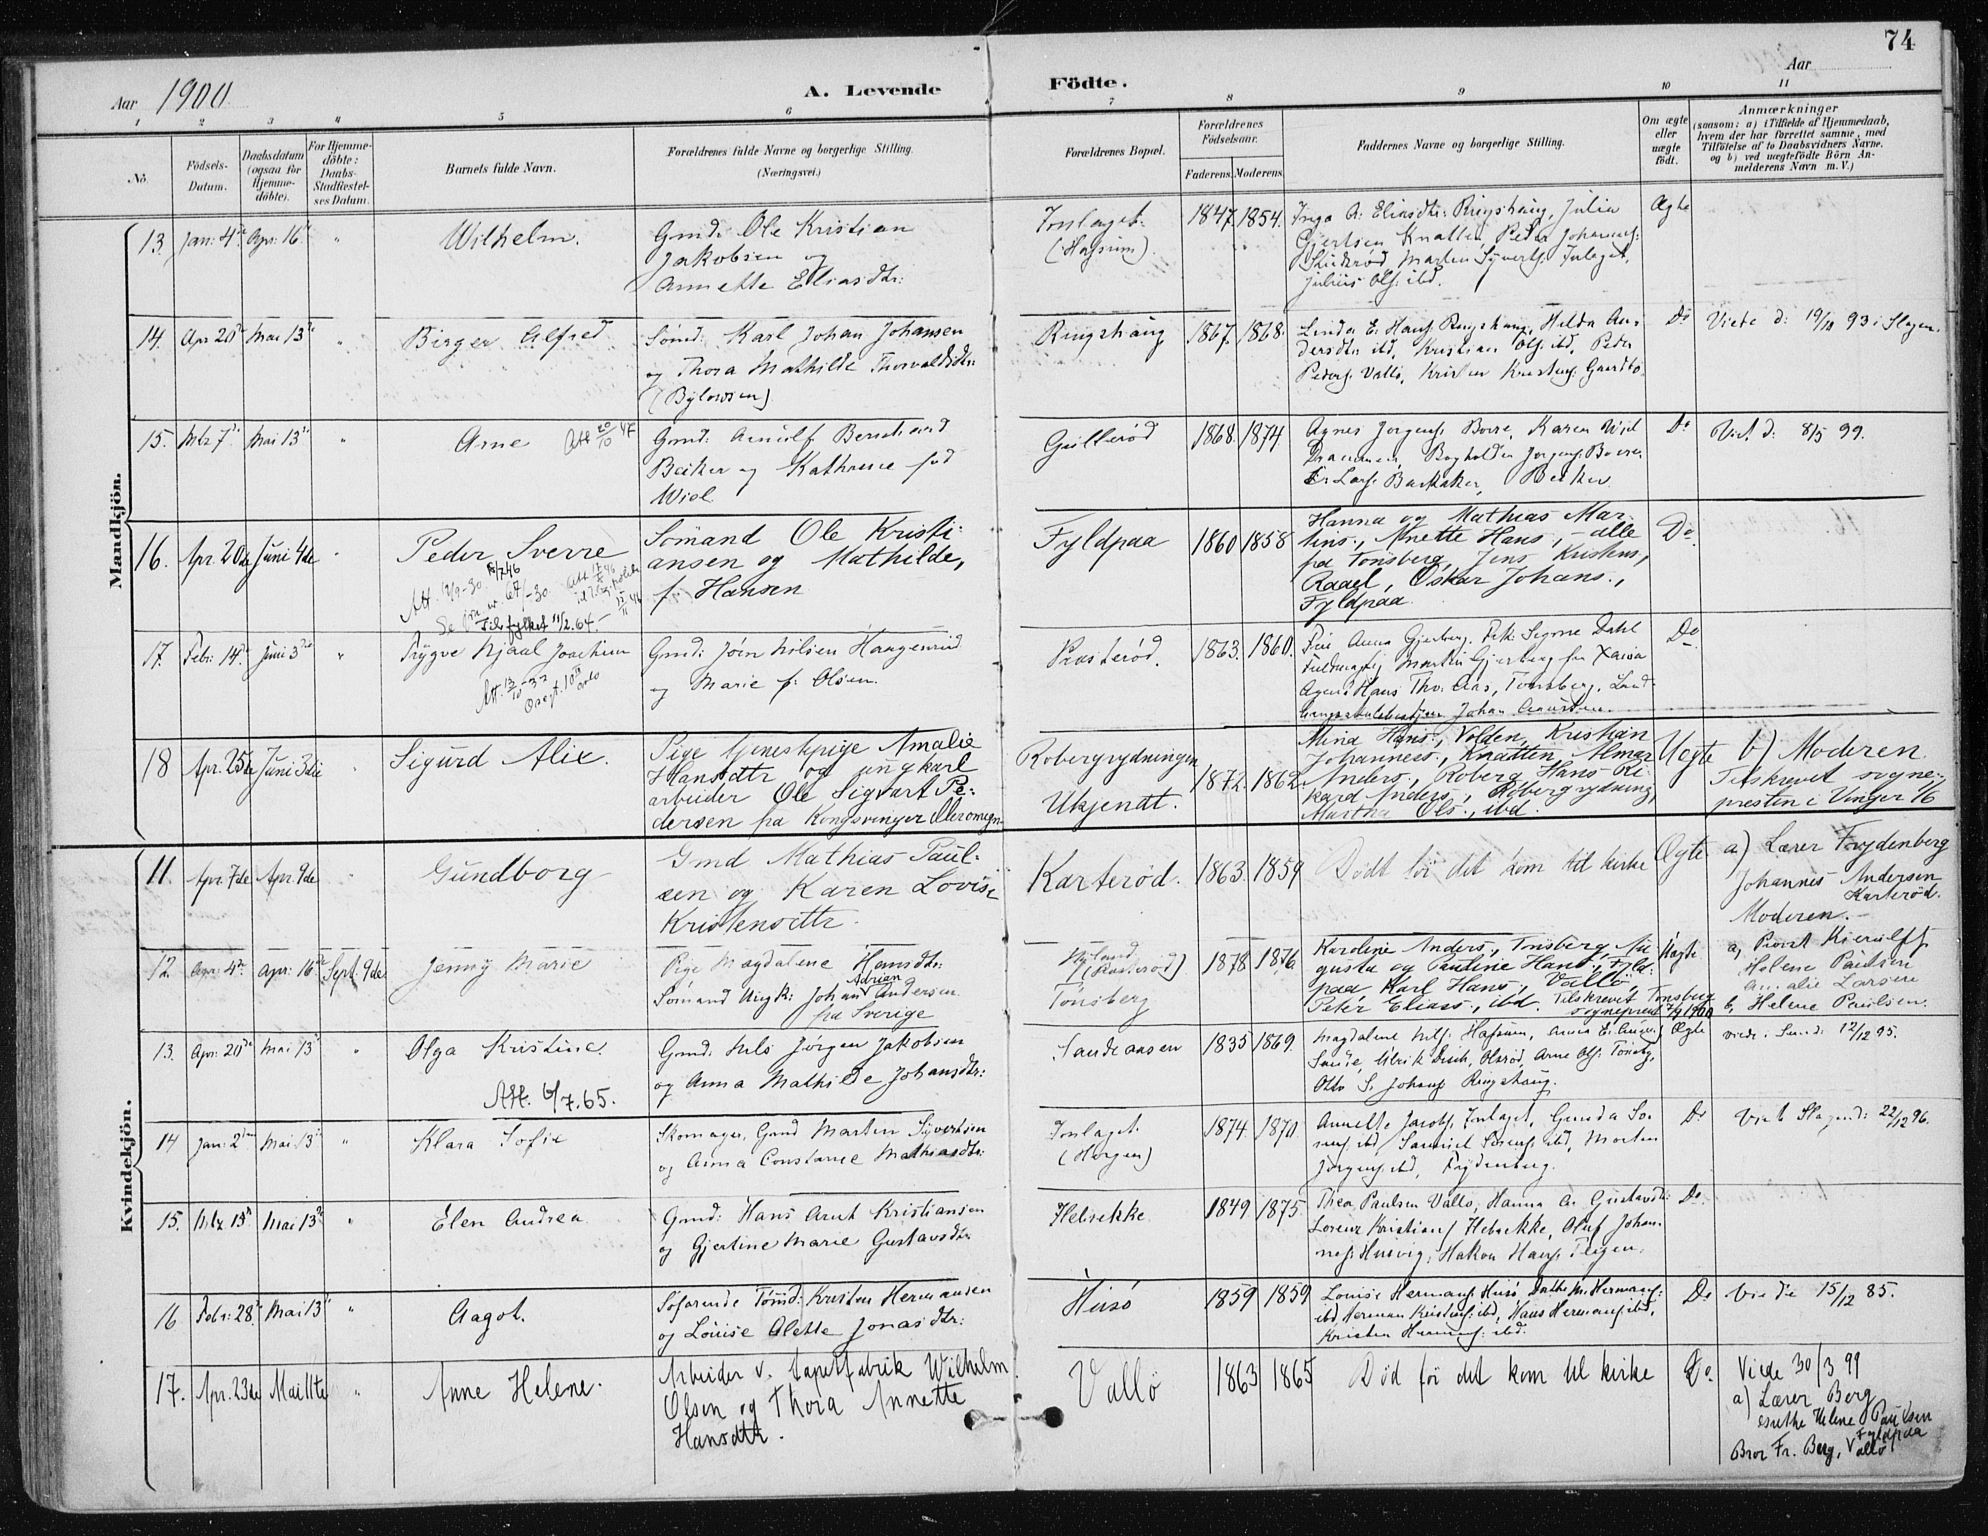 74
Aar 1900
A. Levende Födte.
Aar
1 2 3 4 5 6 7 8 9 10 11
No.
Födsels-Datum.
Daabsdatum (ogsaa for Hjemmedöbte).
For Hjemmedöbte: Daabs-Stadfæstelses Datum.
Barnets fulde Navn.
Forældrenes fulde Navne og borgerlige Stilling.
(Næringsvei.)
Forældrenes Bopæl.
Forældrenes Födselsaar.
Faderens. Moderens.
Faddernes Navne og borgerlige Stilling.
Om ægte eller uægte født.
Anmærkninger
(saasom: a) i Tilfælde af Hjemmedaab, hvem der har forrettet samme, med Tilföielse af to Daabsvidners Navne, og b) ved uægtefödte Börn Anmelderens Navn m. V.)
Mandkjön.
13. Jan: 4de Apr: 16de " Wilhelm.
Gmd: Ole Kristian
Jakobsen og
Annette Eliasdtr:
(Hafsum).
1847. 1854.
Inga A: Eliasdtr: Ringshaug, Julia
Gjertsen Knatten, Peder Johannes:
Julius Ols: ibd.
Ægte
14. Apr 20de Mai 13de " Birger Alfred
Sømd: Karl Johan Johansen
og Thora Mathilde Thorvaldsdtr:
Ringshaug 1867. 1868.
Linda E. Hans: Ringshaug, Hilda An-
dersdtr ibd, Kristian Ols: ibd, Peder
Peders: Vallö, Kristen
Do Viede d: 19/ 93 i Slagen.
15. Mrz 7de Mai 13de " Arne Att 20/10 47
Gmd: Arnulf Bernhard
og Kathrine fød
Wiel
Gullerød 1868. 1874
Agnes Jörgens: Borre, Karen Wiel
Drammen, Bogholder Jörgens: Borre
Do Viet d: 8/5 99.
16. Apr. 20de Juni 4de " Peder Sverre
Att. 12/9-30.
Tils. fylket 11/2.64.
Sömand Ole Kristi-
ansen og Mathilde,
f. Hansen
Fyldpaa 1860 1858
Hanna og Mathias Mar-
tins., Anette Hans., - alle
fra Tønsberg, Jens Kristens,
Raael, Oskar Johans.,
Fyldpaa.
Do
17. Febr: 14de Juni 3de " Trygve Njaal Joachim
Gmd: Jörn Nilsen Haugerud
og Marie f: Olsen.
Prösterød. 1863. 1860.
Anna Gjerberg, Frk: Signe Dahl
Fuldmægtig Martin Gjerberg fra
Agent Hans Tho: Aas, Tønsberg,
Johan
Do
18 Apr. 25de Juni 3die Sigurd Alix.
Pige tjenestepige Amalie
Hansdtr og ungkarl
arbeider Ole Sigvart Pe-
dersen fra Kongsvinger
Robergrydningen
Ukjendt.
1872. 1862.
Mina Hans., Volden, Kristian
Johanness., Knatten, Almar
Anders., Roberg, Hans Ri-
kard Anders., Robergrydning,
Martha Ols., ibd.
Uegte
b) Moderen
Tilskrevet sogne-
presten i Vinger 1/6
Kvindekjön.
11. Apr. 7de Apr. 9de Gundborg
Gmd Mathias Paul-
sen og Karen Lovise
Kristensdtr.
Karterød. 1863. 1859
Dødt før det kom til kirke
Ægte
a) Lærer Frydenberg
Johannes Andersen
Karterød.
Moderen.
12 Apr: 4de Apr: 16de Sept. 9de Jenny Marie
Pige Magdalene Hansdtr:
Sömand Ungk: Johan Adrian Andersen
fra Sverige
Tönsberg
1878 1876.
Karoline Anders., Tønsberg, Au-
gusta og Pauline Hans., Fyld-
paa Karl Hans., Vallö,
Peter Elias., ibd. Tilskrevet Tønsberg
sogneprest 7/9 1900
Uægte
a, Provst Kierulf,
Helene Paulsen
Amalie Larsen
b, Helene Paulsen.
13. Apr: 20de Mai 13de " Olga Kristine.
Att. 6/7.65.
Gmd: Nils Jörgen Jakobsen
og Anna Mathilde Johansdtr:
Sandeaasen 1835 1869.
Magdalene Nils: Hafsum,
Arne Ols: Tönsbg,
Otto S. Johans: Ringshaug.
Ægte
viede i Sand: 12/12 95.
14 Jan: 2den Mai 13de " Klara Sofie
Skomager, Gmd Martin Syvertsen
og Anna Constance Mathiasdtr:
(Horgen)
1874. 1870.
Samuel Sörens: ibd, Morten
Jörgens: ibd, Frydenberg.
Do Viet Slagen d: 22/12 96.
15. Mrz 13de Mai 13de " Elen Andrea
Gmd: Hans Arnt Kristiansen
og Gjertine Marie Gustavsdtr:
Helsekke. 1849 1875.
Thea Paulsen Vallö, Hanna A. Gustavsdtr
Lorenz Kristians: Helsekke, Oluf Johan-
nes: Husvig, Hakon Hans: Teigen.
Do.
16 Febr: 28de Mai 13de " Aagot.
Söfarende Tömd: Kristen Hermansen
og Louise Alette Jonasdtr:
Husö 1859 1859
Louise Hermans: Husö, Dathe M. Hermans:
ibd, Herman Kristens: ibd, Hans Hermans: ibd,
Kristen Hermans: ibd.
Do Viede 15/12 85.
17. Apr. 23de Mai 11te " Anne Helene.
Arbeider v. tapetfabrik Wilhelm
Olsen og Thora Annette
Hansdtr.
Vallö 1863 1865
Død før det kom til kirke
Do
Viede 30/3 99
a) Lærer Berg
enke Helene Paulsen
Fyldpaa
Bror Fr. Berg, Vallö